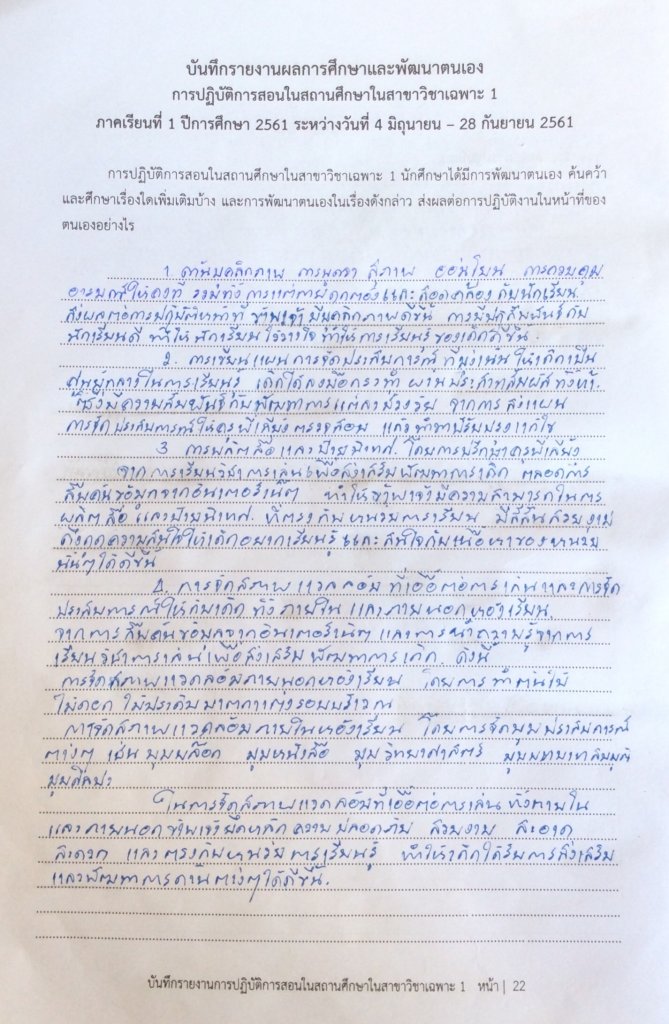 บันทึกรายงานผลการศึกษาและพัฒนาตนเอง
การปฏิบัติการสอนในสถานศึกษาในสาขาวิชาเฉพาะ 1
ภาคเรียนที่ 1 ปีการศึกษา 2561 ระหว่างวันที่ 4 มิถุนายน – 28 กันยายน 2561
การปฏิบัติการสอนในสถานศึกษาในสาขาวิชาเฉพาะ 1 นักศึกษาได้มีการพัฒนาตนเอง ค้นคว้า
และศึกษาเรื่องใดเพิ่มเติมบ้าง และการพัฒนาตนเองในเรื่องดังกล่าว ส่งผลต่อการปฏิบัติงานในหน้าที่ของ
ตนเองอย่างไร
1. ด้านบุคลิกภาพ การพูดจา สุภาพ อ่อนโยน การควบคุม
อารมณ์ให้คงที่ รวมทั้งการแต่งกายถูกต้องและสอดคล้องกับนักเรียน
ส่งผลต่อการปฏิบัติหน้าที่ ข้าพเจ้ามีบุคลิกภาพดีขึ้น การมีปฏิสัมพันธ์กับ
นักเรียนดี ทำให้นักเรียนไว้วางใจ ทำให้การเรียนรู้ของเด็กดีขึ้น
2. การเขียนแผนการจัดประสบการณ์ ที่มุ่งเน้นให้เด็กเป็น
ศูนย์กลางในการเรียนรู้ เด็กได้ลงมือกระทำ ผ่านประสาทสัมผัสทั้งห้า
ซึ่งมีความสัมพันธ์กับพัฒนาการแต่ละช่วงวัย จากการส่งแผน
การจัดประสบการณ์ให้ครูพี่เลี้ยงตรวจสอบ แล้วนำมาปรับปรุงแก้ไข
3. การผลิตสื่อและป้ายนิเทศ โดยการปรึกษาครูพี่เลี้ยง
จากการเรียนวิชาการเล่นเพื่อส่งเสริมพัฒนาการเด็ก ตลอดการ
สืบค้นข้อมูลจากอินเตอร์เน็ต ทำให้ข้าพเจ้ามีความสามารถในการ
ผลิตสื่อ และป้ายนิเทศ ที่ตรงกับหน่วยการเรียน มีสีสันสวยงาม
ดึงดูดความสนใจให้เด็กอยากเรียนรู้ และสนใจกับเนื้อหาของหน่วย
นั้นๆได้ดีขึ้น
4. การจัดสภาพแวดล้อม ที่เอื้อต่อการเล่นและการจัด
ประสบการณ์ให้กับเด็ก ทั้งภายใน และภายนอกห้องเรียน
จากการสืบค้นข้อมูลจากอินเตอร์เน็ต และการนำความรู้จากการ
เรียนวิชาการเล่นเพื่อส่งเสริมพัฒนาการเด็ก ดังนี้
การจัดสภาพแวดล้อมภายนอกห้องเรียน โดยการนำต้นไม้
ไม้ดอก ไม้ประดับมาตกแต่งรอบบริเวณ
การจัดสภาพแวดล้อมภายในห้องเรียน โดยการจัดมุมประสบการณ์
ต่างๆ เช่น มุมบล็อก มุมหนังสือ มุมวิทยาศาสตร์ มุมบทบาทสมมุติ
มุมศิลปะ
ในการจัดสภาพแวดล้อมที่เอื้อต่อการเล่น ทั้งภายใน
และภายนอก ข้าพเจ้ายึดหลักความปลอดภัย สวยงาม สะอาด
สะดวก และตรงกับหน่วยการเรียนรู้ ทำให้เด็กได้รับการส่งเสริม
และพัฒนาการด้านต่างๆได้ดีขึ้น.
บันทึกรายงานการปฏิบัติการสอนในสถานศึกษาในสาขาวิชาเฉพาะ 1 หน้า | 22